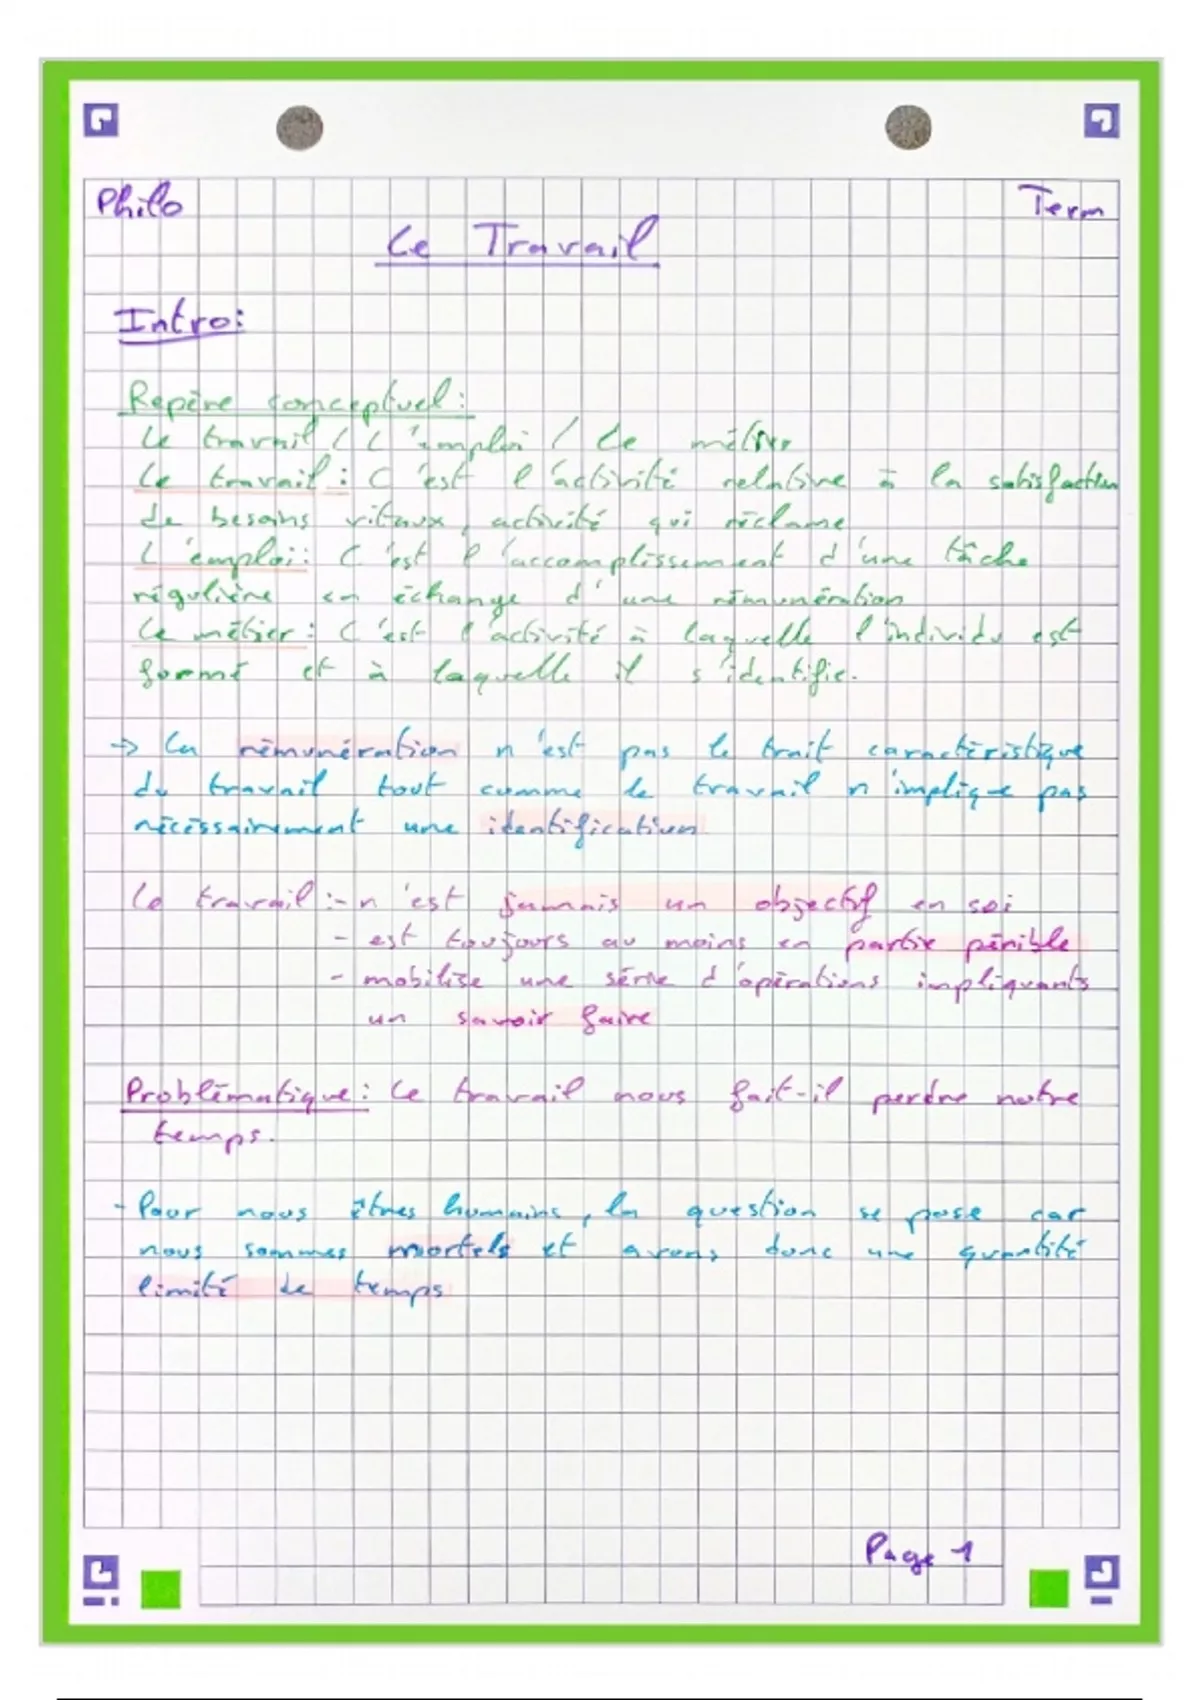 Philo
Term
Le Travail
Intro:
Repère conceptuel :
Le travail / L'emploi / Le métier
Le travail : C'est l'activité relative à la satisfaction
de besoins vitaux, activité qui réclame
L'emploi : C'est l'accomplissement d'une tâche
régulière en échange d'une rémunération
Le métier : C'est l'activité à laquelle l'individu est
formé et à laquelle il s'identifie.
→ La rémunération n'est pas le trait caractéristique
du travail tout comme le travail n'implique pas
nécessairement une identification
Le travail : - n'est jamais un objectif en soi
- est toujours au moins en partie pénible
- mobilise une série d'opérations impliquants
un savoir faire
Problématique : Le travail nous fait-il perdre notre
temps.
- Pour nous êtres humains, la question se pose car
nous sommes mortels et avons donc une quantité
limité de temps
Page 1